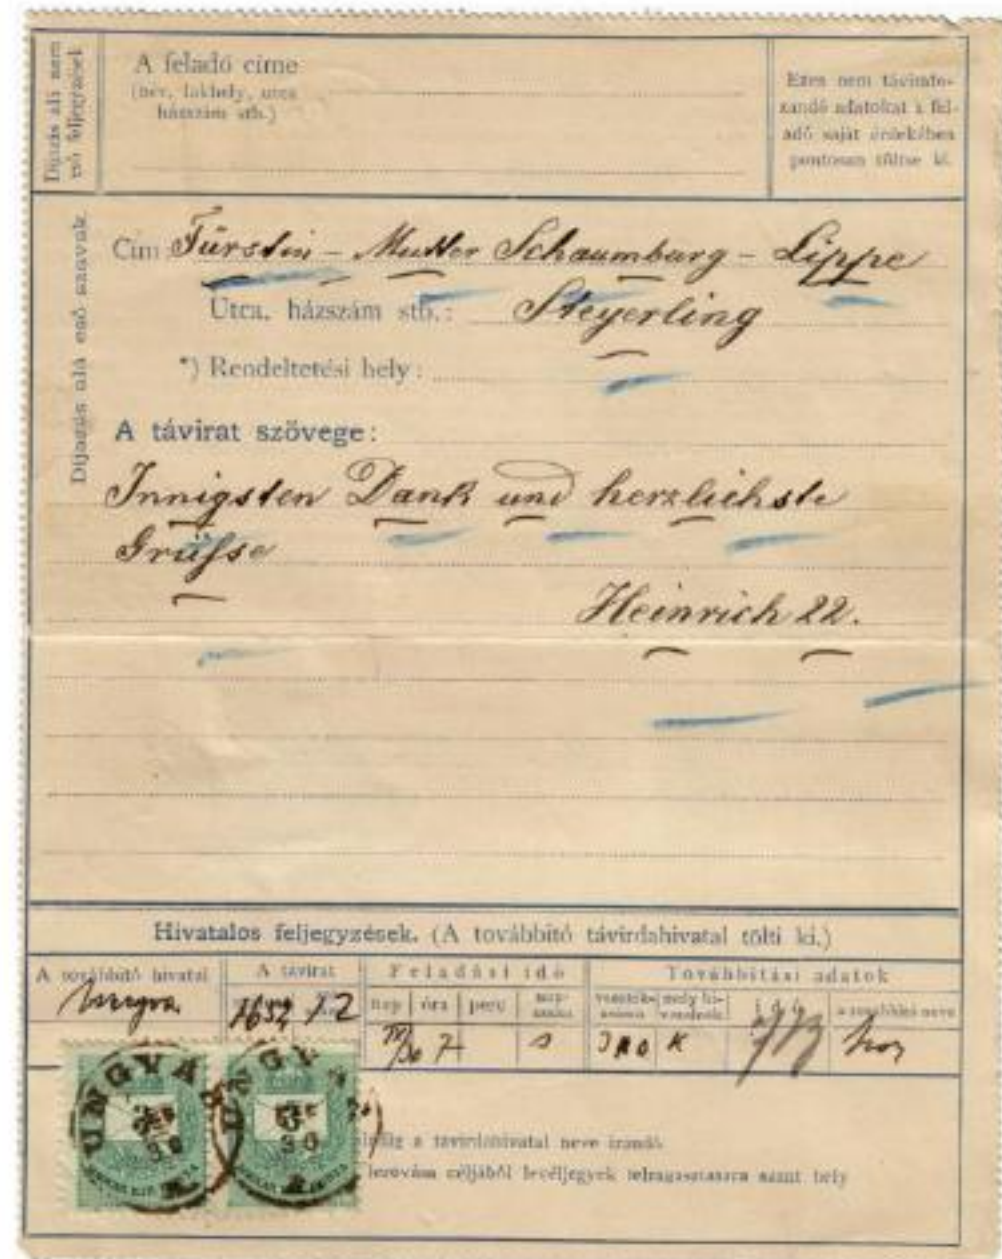 Díjazás alá nem eső feljegyzések
A feladó címe
(név, lakhely, utca
házszám stb.)
Ezen nem távirato-
zandó adatokat a fel-
adó saját érdekében
pontosan töltse ki.
Díjazás alá eső szavak.
Cím Fürstin - Mutter Schaumburg - Lippe
Utca, házszám stb.: Steyerling
*) Rendeltetési hely:
A távirat szövege:
Innigsten Dank und herzlichste
Grüsse
Heinrich 22.
Hivatalos feljegyzések. (A továbbító távirdahivatal tölti ki.)
A továbbító hivatal A távirat Feladási idő Továbbítási adatok
nap óra perc a továbbító neve
7 K
UNGVÁR UNGVÁR
30 30
a távirdahivatal neve írandó.
lerovása céljából levéljegyek felragasztására szánt hely